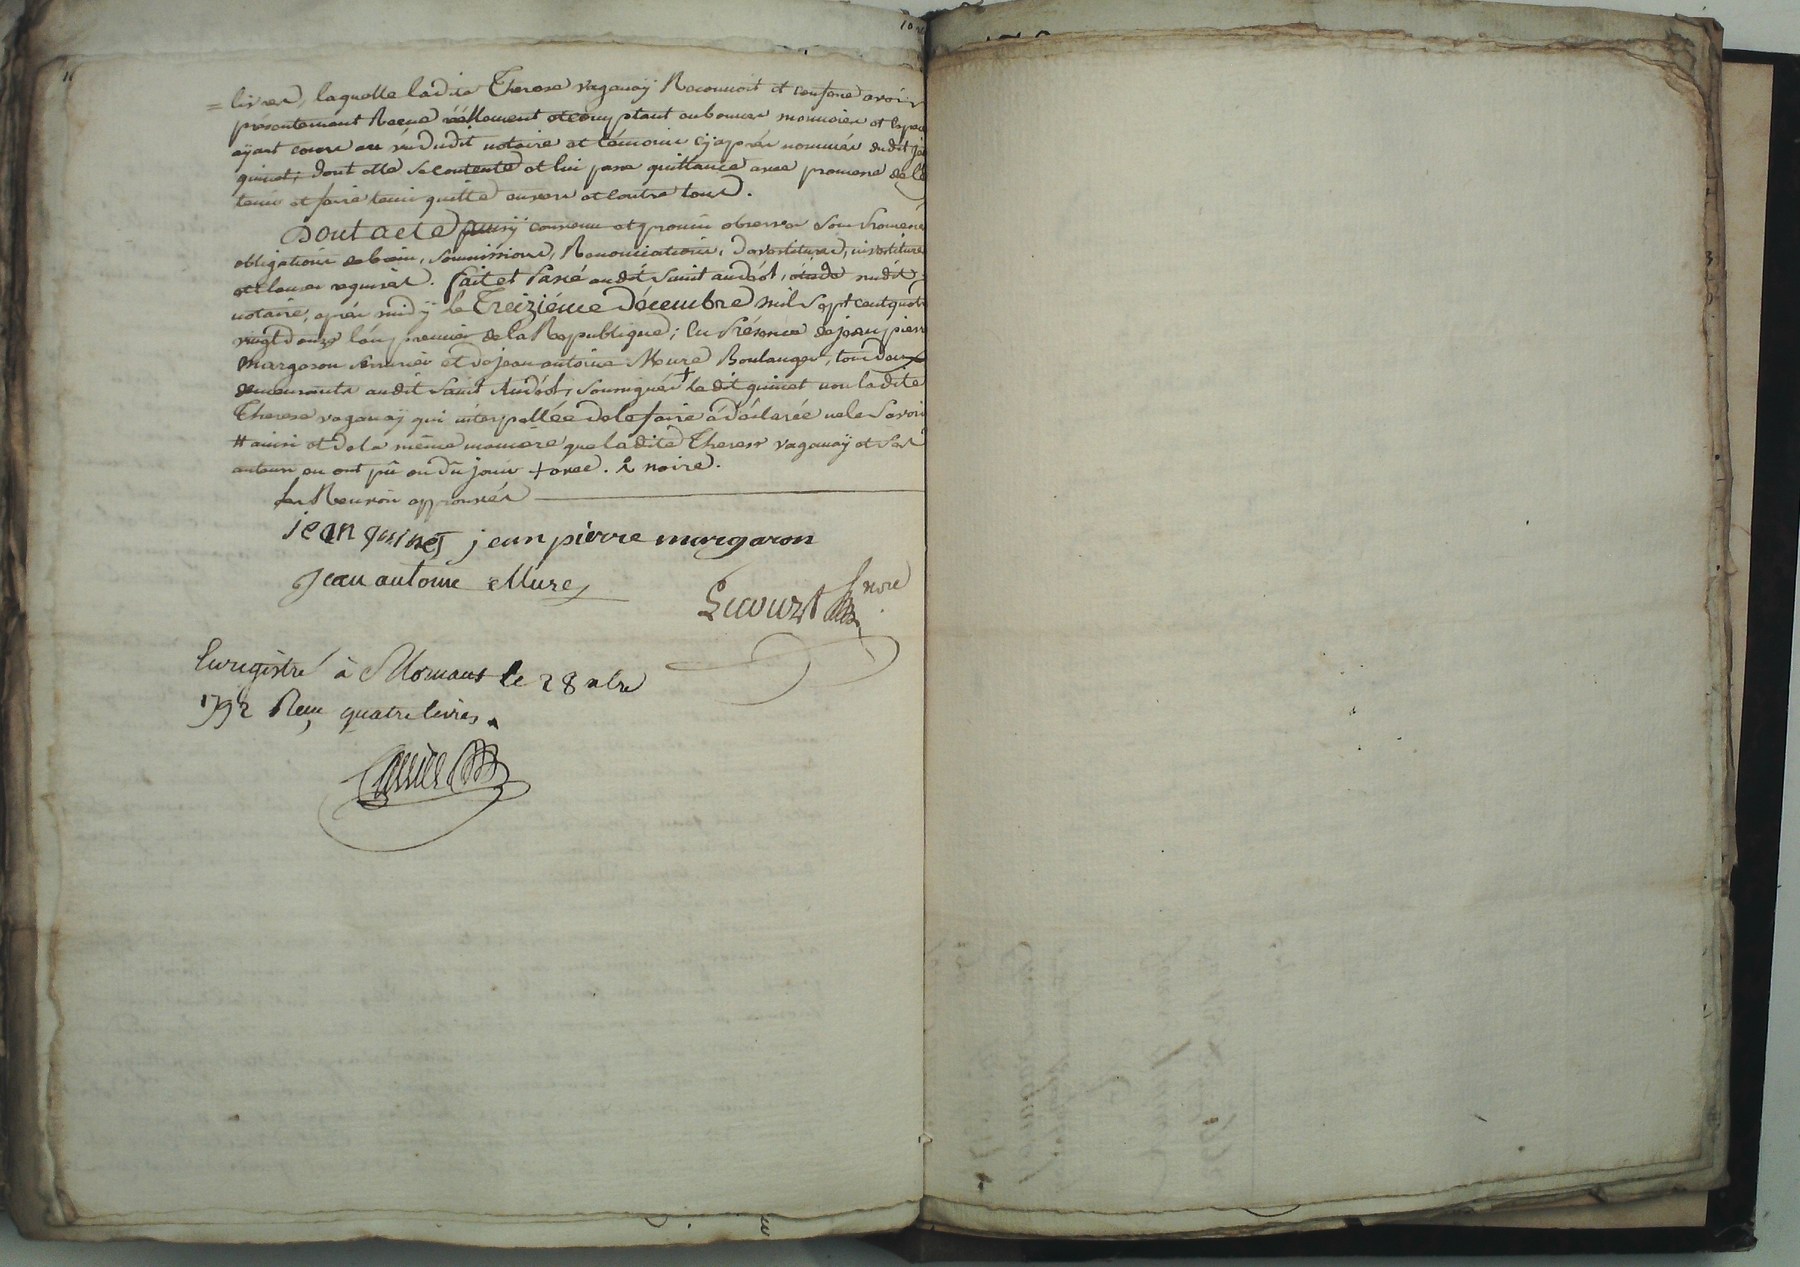 = livres, laquelle ladite Therese vaganaÿ Reconnoit et confesse avoir
présentement Recue réellement et comptant en bonnes monnoies et
aÿant cours au vû dudit notaire et témoins cÿaprés nommés dudit
quinet; dont elle se contente et lui passe quittance avec promesse de le
tenir et faire tenir quitte envers et contre tous.
Dont acte ainsÿ convenu et promis observer sous
obligations de biens, soumissions, Renonciations, devestitures, investitures
et clauses requises. fait et Passé audit saint andéol, étude nudit
notaire, aprés midÿ le Treiziéme décembre mil Sept cent quatre
vingt douze l'an premier de la Republique; En Présence de jean pierre
margaron serrurier et de jean antoine Mure Boulanger, tous deux
demeurants audit saint Andéol, soussignés + ledit quinet non ladite
Therese vaganaÿ qui interpellée de le faire á déclarée ne le savoir
# ainsi et de la même maniére que ladite Therese vaganaÿ et ses
auteurs en ont pû ou dû jouir + avec. & noire.
les Renvois approuvés
jean quinet jean pierre margaron
Jean antoine Mure
Lecourt nore
Enregistré à Mornant le 28 xbre
1792 Reçu quatre livres